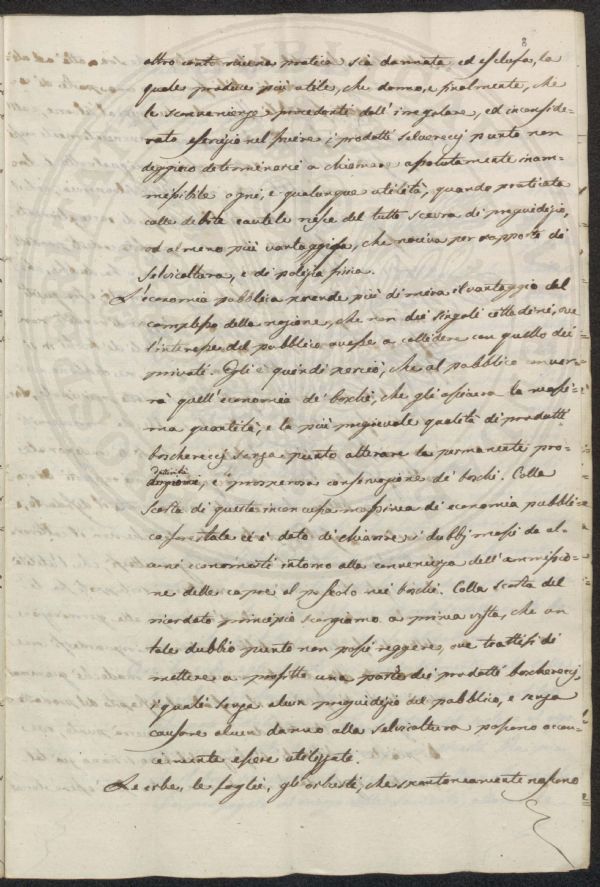 8
altro canto niuna pratica sia dannata ed esclusa, la
quale produce più utile, che danno, e finalmente, che
le sconvenienze procedenti dall' irregolare, ed inconside-
rato esercizio nel fruire i prodotti selvereccj punto non
deggiono determinarci a chiamare assolutamente inam-
missibile ogni, e qualunque utilità, quando praticata
colle debite cautele riesce del tutto scevra di pregiudizio,
od almeno più vantaggiosa, che nociva per rapporto di
selvicoltura, e di polizia fisica.
L'economia pubblica prende più di mira il vantaggio del
complesso della nazione, che non dei singoli cittadini, ove
l'interesse del pubblico avesse a collidere con quello dei
privati. Egli è quindi perciò, che al pubblico conver-
rà quell' economia de' boschi, che gli assicura la massi-
ma quantità, e la più pregievole qualità di prodotti
boschereccj senza punto alterare la permanente pro-
, e prosperosa conservazione de' boschi. Colla
scorta di questa inconcussa massima di economia pubbli-
ca forestale ci è dato di chiarire i dubbj mossi da al-
cuni economisti intorno alla convenienza dell' ammissio-
ne delle capre al pascolo nei boschi. Colla scorta del
ricordato principio scorgiamo a prima vista, che un
tale dubbio punto non possa reggere, ove trattisi di
mettere a profitto una parte dei prodotti boschereccj,
i quali senza alcun pregiudizio del pubblico, e senza
causare alcun danno alla selvicoltura possono accon-
ciamente essere utilizzati.
Le erbe, le foglie, gli arbusti, che spontaneamente nascono